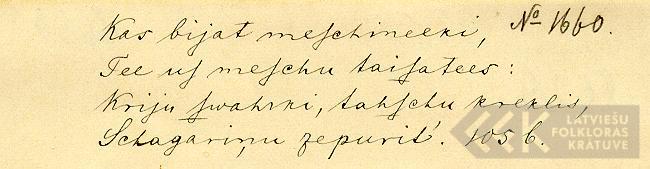 Kas bijat meſchineeki, № 1660.
Tee uſ meſchu taiſatees:
Kriju ſwahrki, tahſchu kreklis,
Schagariņu zepurit'. 105 b.
LATVIEŠU
FOLKLORAS
KRĀTUVE